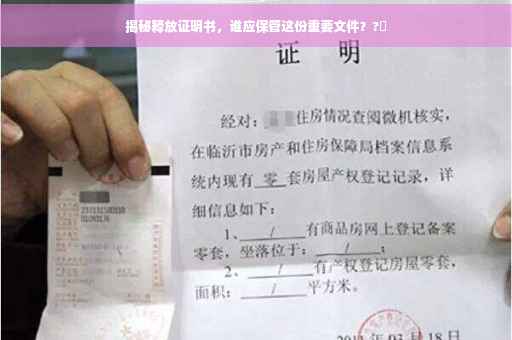 揭秘释放证明书，谁应保管这份重要文件？?
证 明
经对：住房情况查阅微机核实，
在临沂市房产和住房保障局档案信息系
统内现有 零 套房屋产权登记记录，详
细信息如下：
1、 / 有商品房网上登记备案
零套，坐落位于： / ；
2、 / 有产权登记房屋零套，
面积： / 平方米。
03月18日